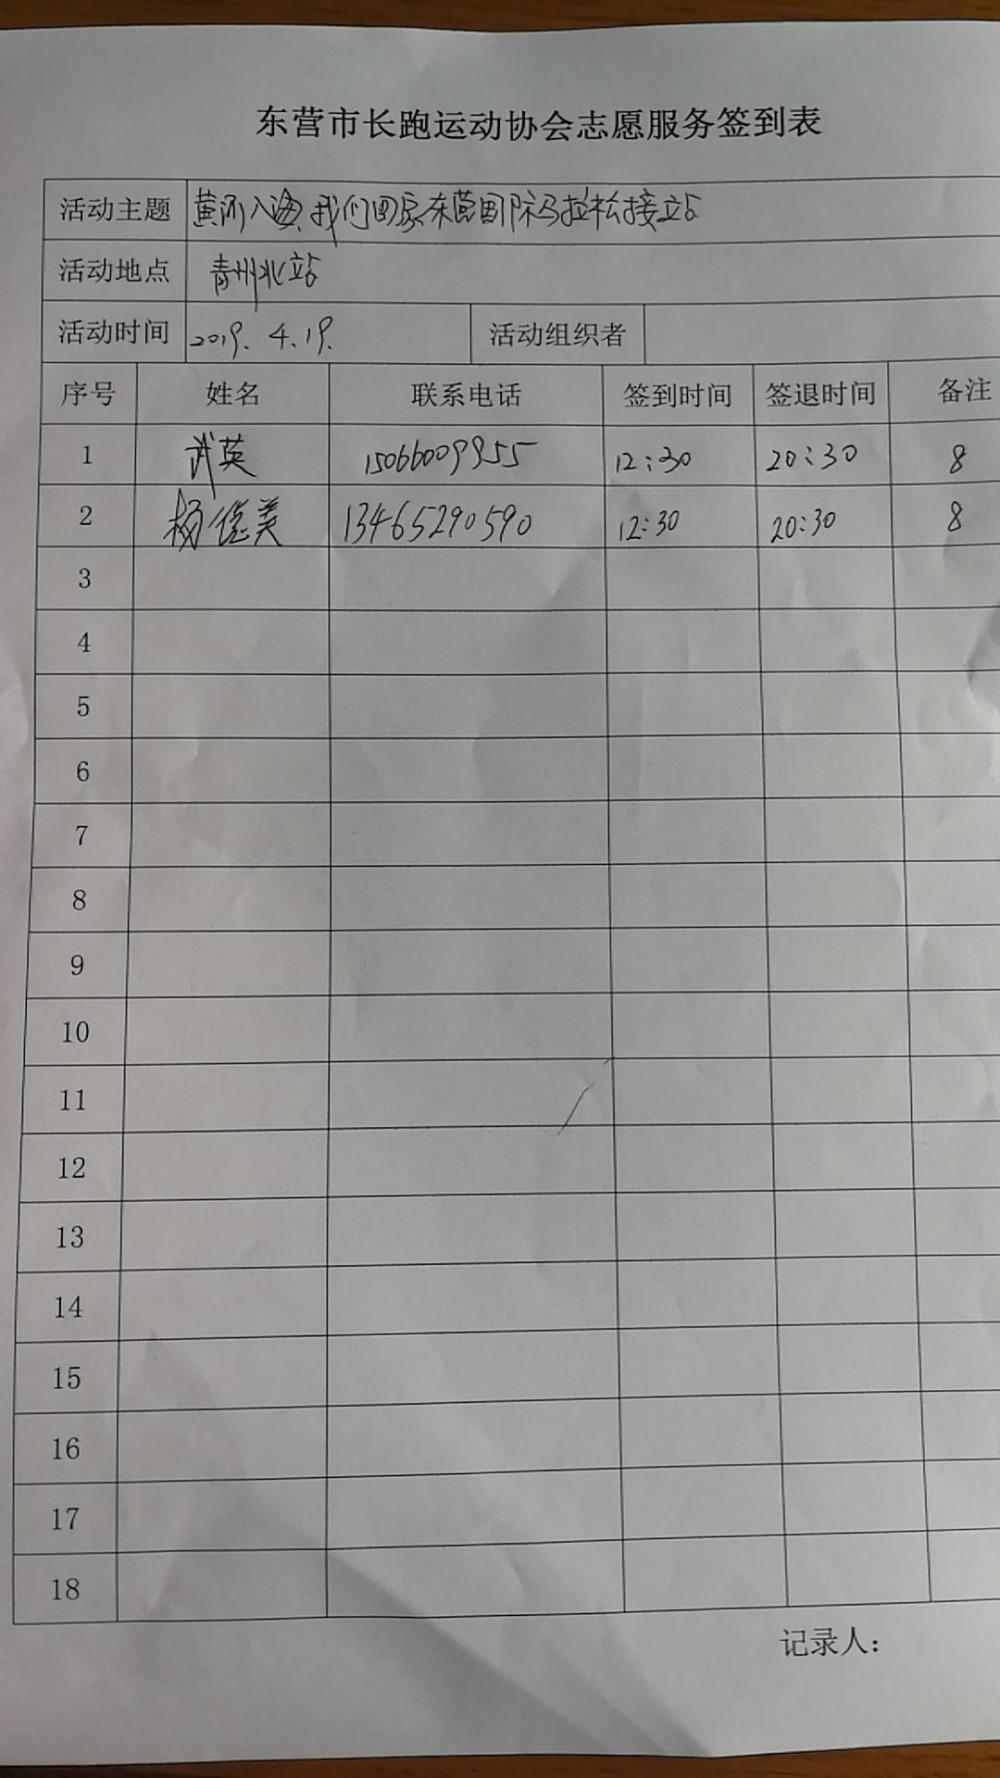 东营市长跑运动协会志愿服务签到表
活动主题 黄河入海,我们回家东营国际马拉松接站
活动地点 青州北站
活动时间 2019.4.19. 活动组织者
序号 姓名 联系电话 签到时间 签退时间 备注
1 武英 15066009955 12:30 20:30 8
2 杨佳美 13465290590 12:30 20:30 8
3
4
5
6
7
8
9
10
11
12
13
14
15
16
17
18
记录人: